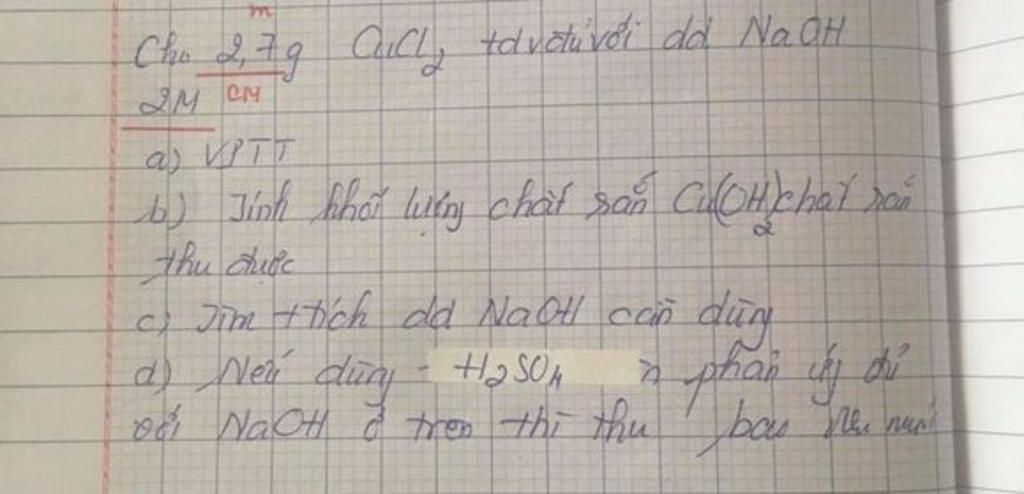 m
Cho 2,7g CuCl2 tdvđủ với dd NaOH
2M CM
a) VPTT
b) Tính khối lượng chất rắn Cu(OH)2 chất rắn
thu được
c) Tìm ttích dd NaOH cần dùng
d) Nếu dùng H2SO4 phản ứng đủ
với NaOH ở trên thì thu bao nhiêu muối